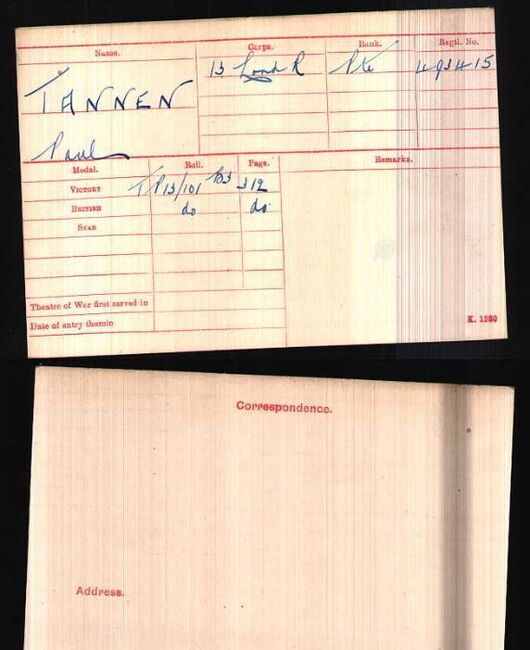 Name. Corps. Rank. Regtl. No.
13 Lond R Pte 493415
TANNEN
Paul
Medal. Roll. Page. Remarks.
VICTORY TP13/101 B3 312
BRITISH do do
STAR
Theatre of War first served in
Date of entry therein
K. 1380
Correspondence.
Address.